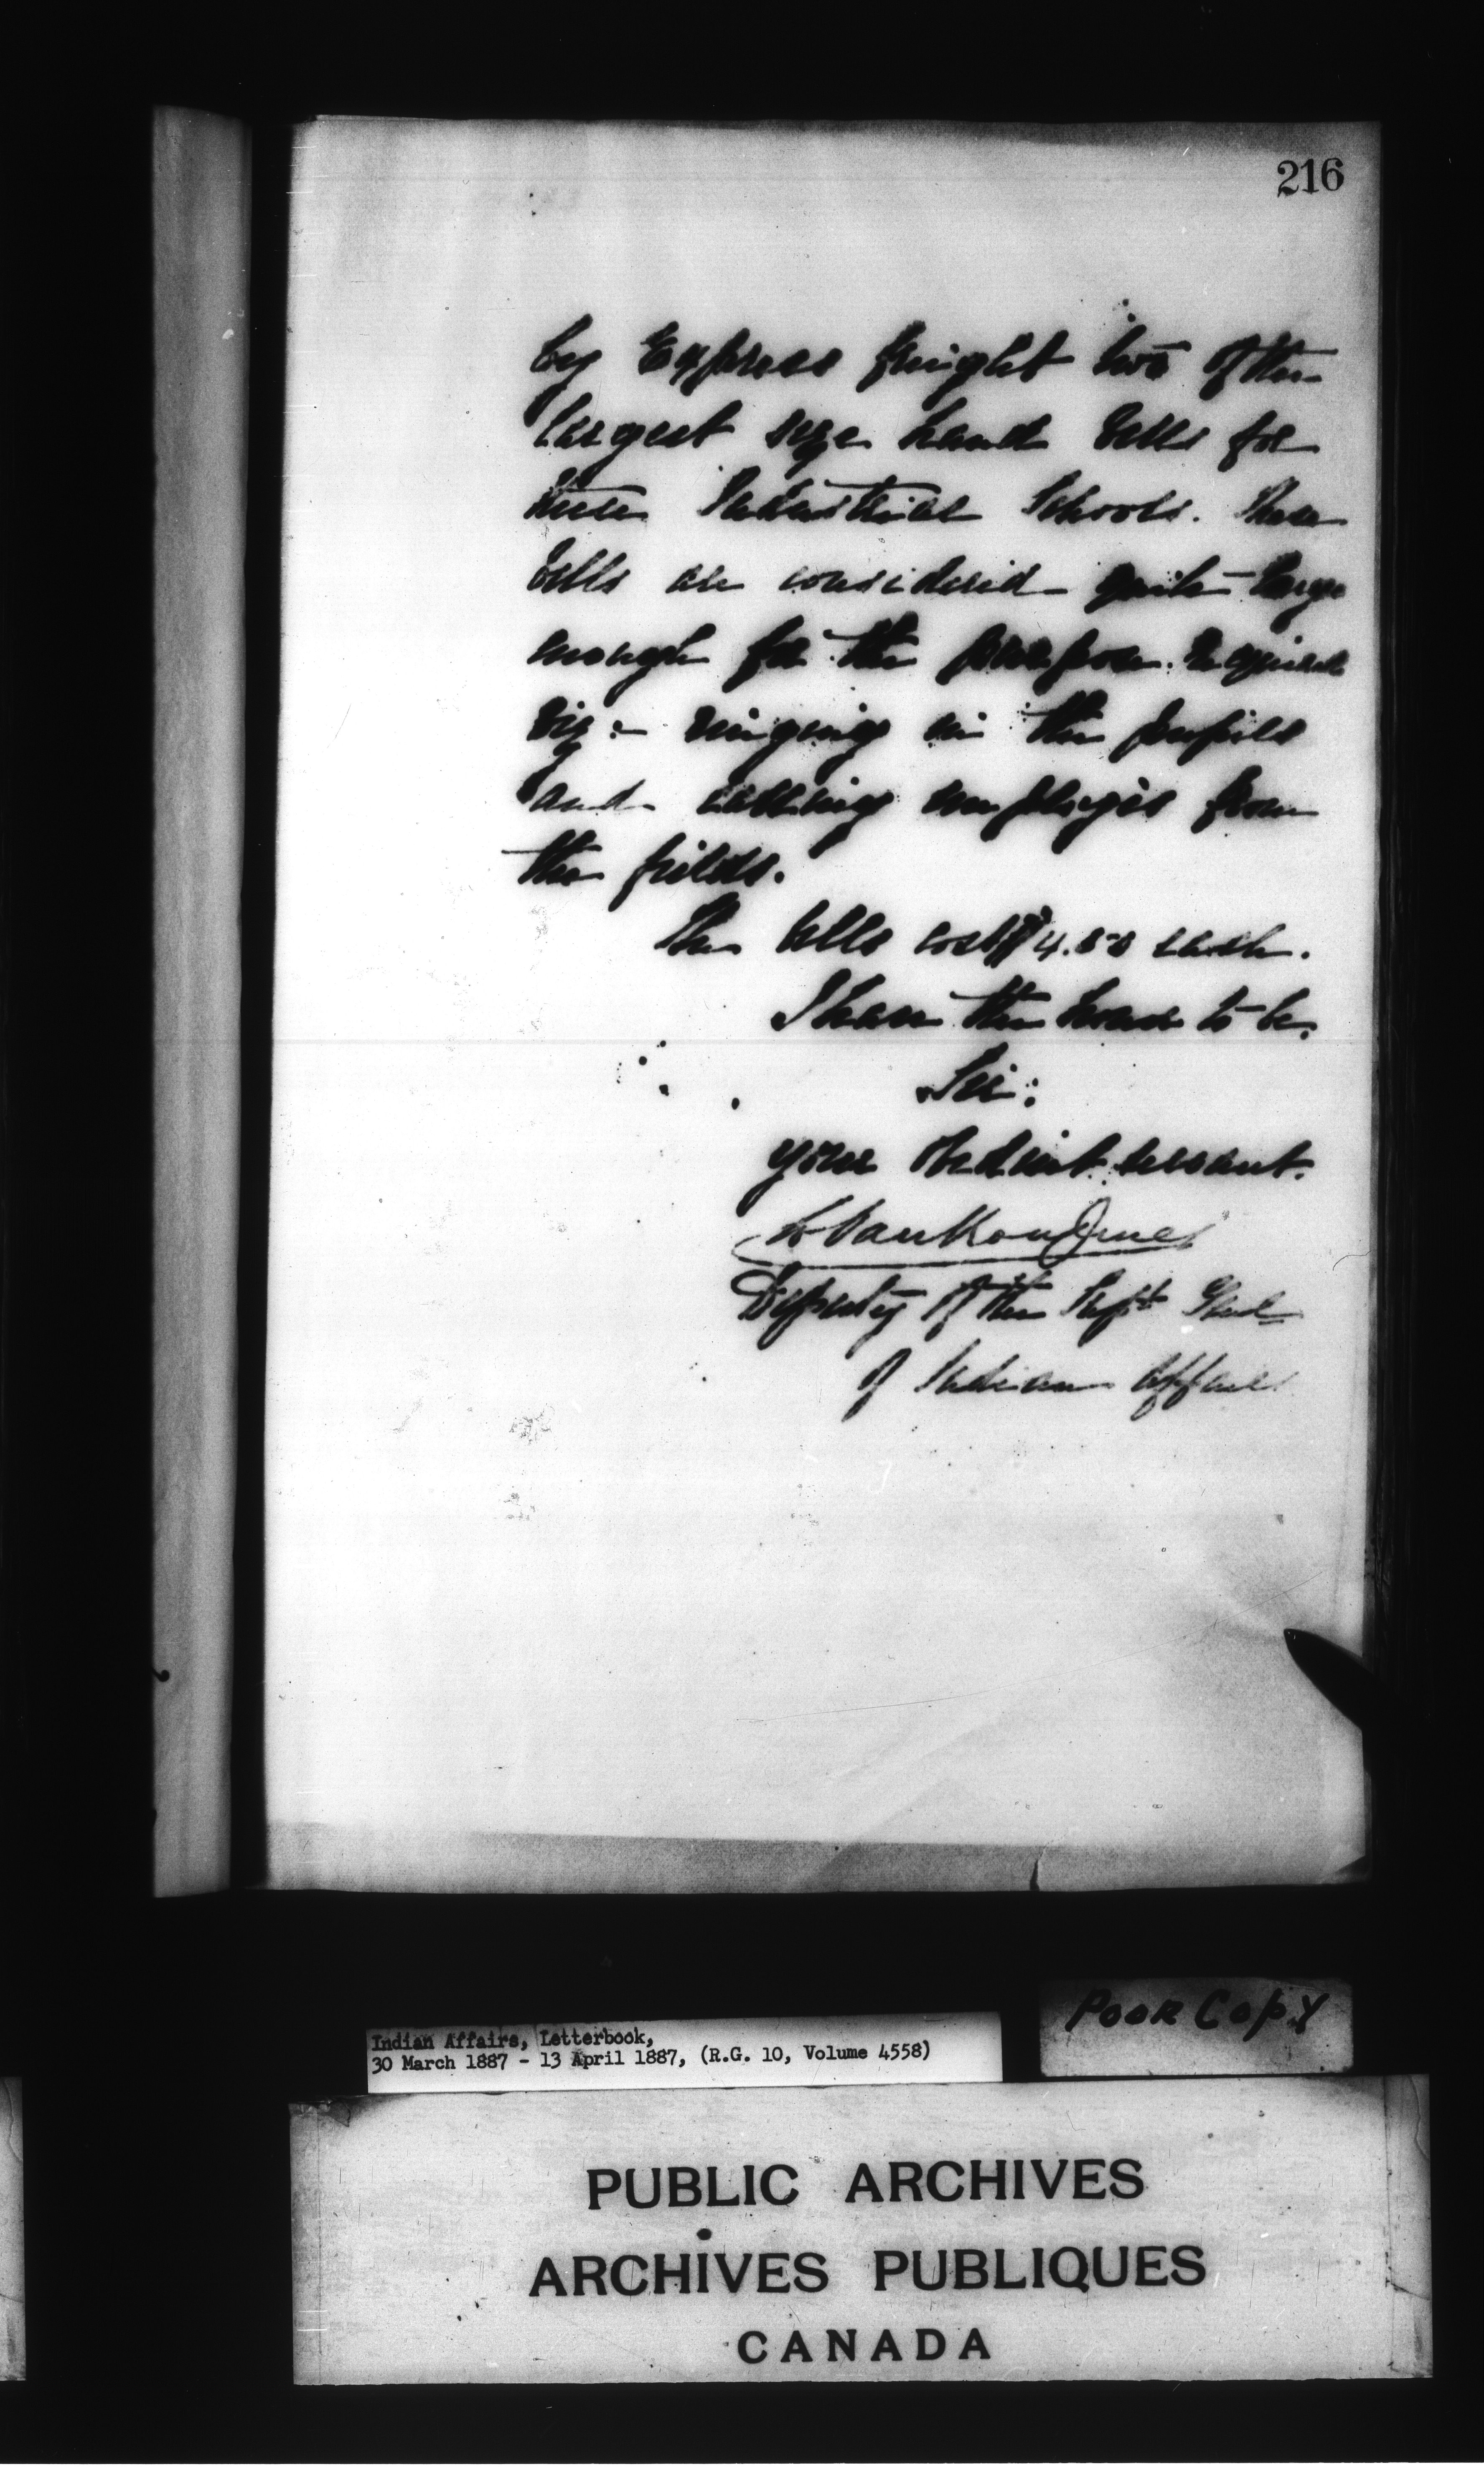 216
by Express freight two of the
largest size hand bells for
these Industrial Schools. These
bells are considered quite large
enough for the purpose required
viz:- ringing in the pupils
and calling employés from
the fields.
The bells cost $4.50 each.
I have the honor to be,
Sir:
your obedient servant.
L. VanKoughnet
Deputy of the Supt Genl
of Indian Affairs
Poor Copy
Indian Affairs, Letterbook,
30 March 1887 - 13 April 1887, (R.G. 10, Volume 4558)
PUBLIC ARCHIVES
ARCHIVES PUBLIQUES
CANADA